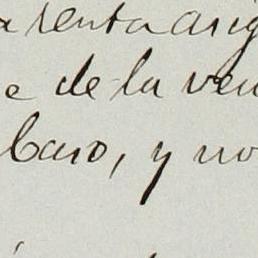 a renta asig
e de la ven
baro, y no